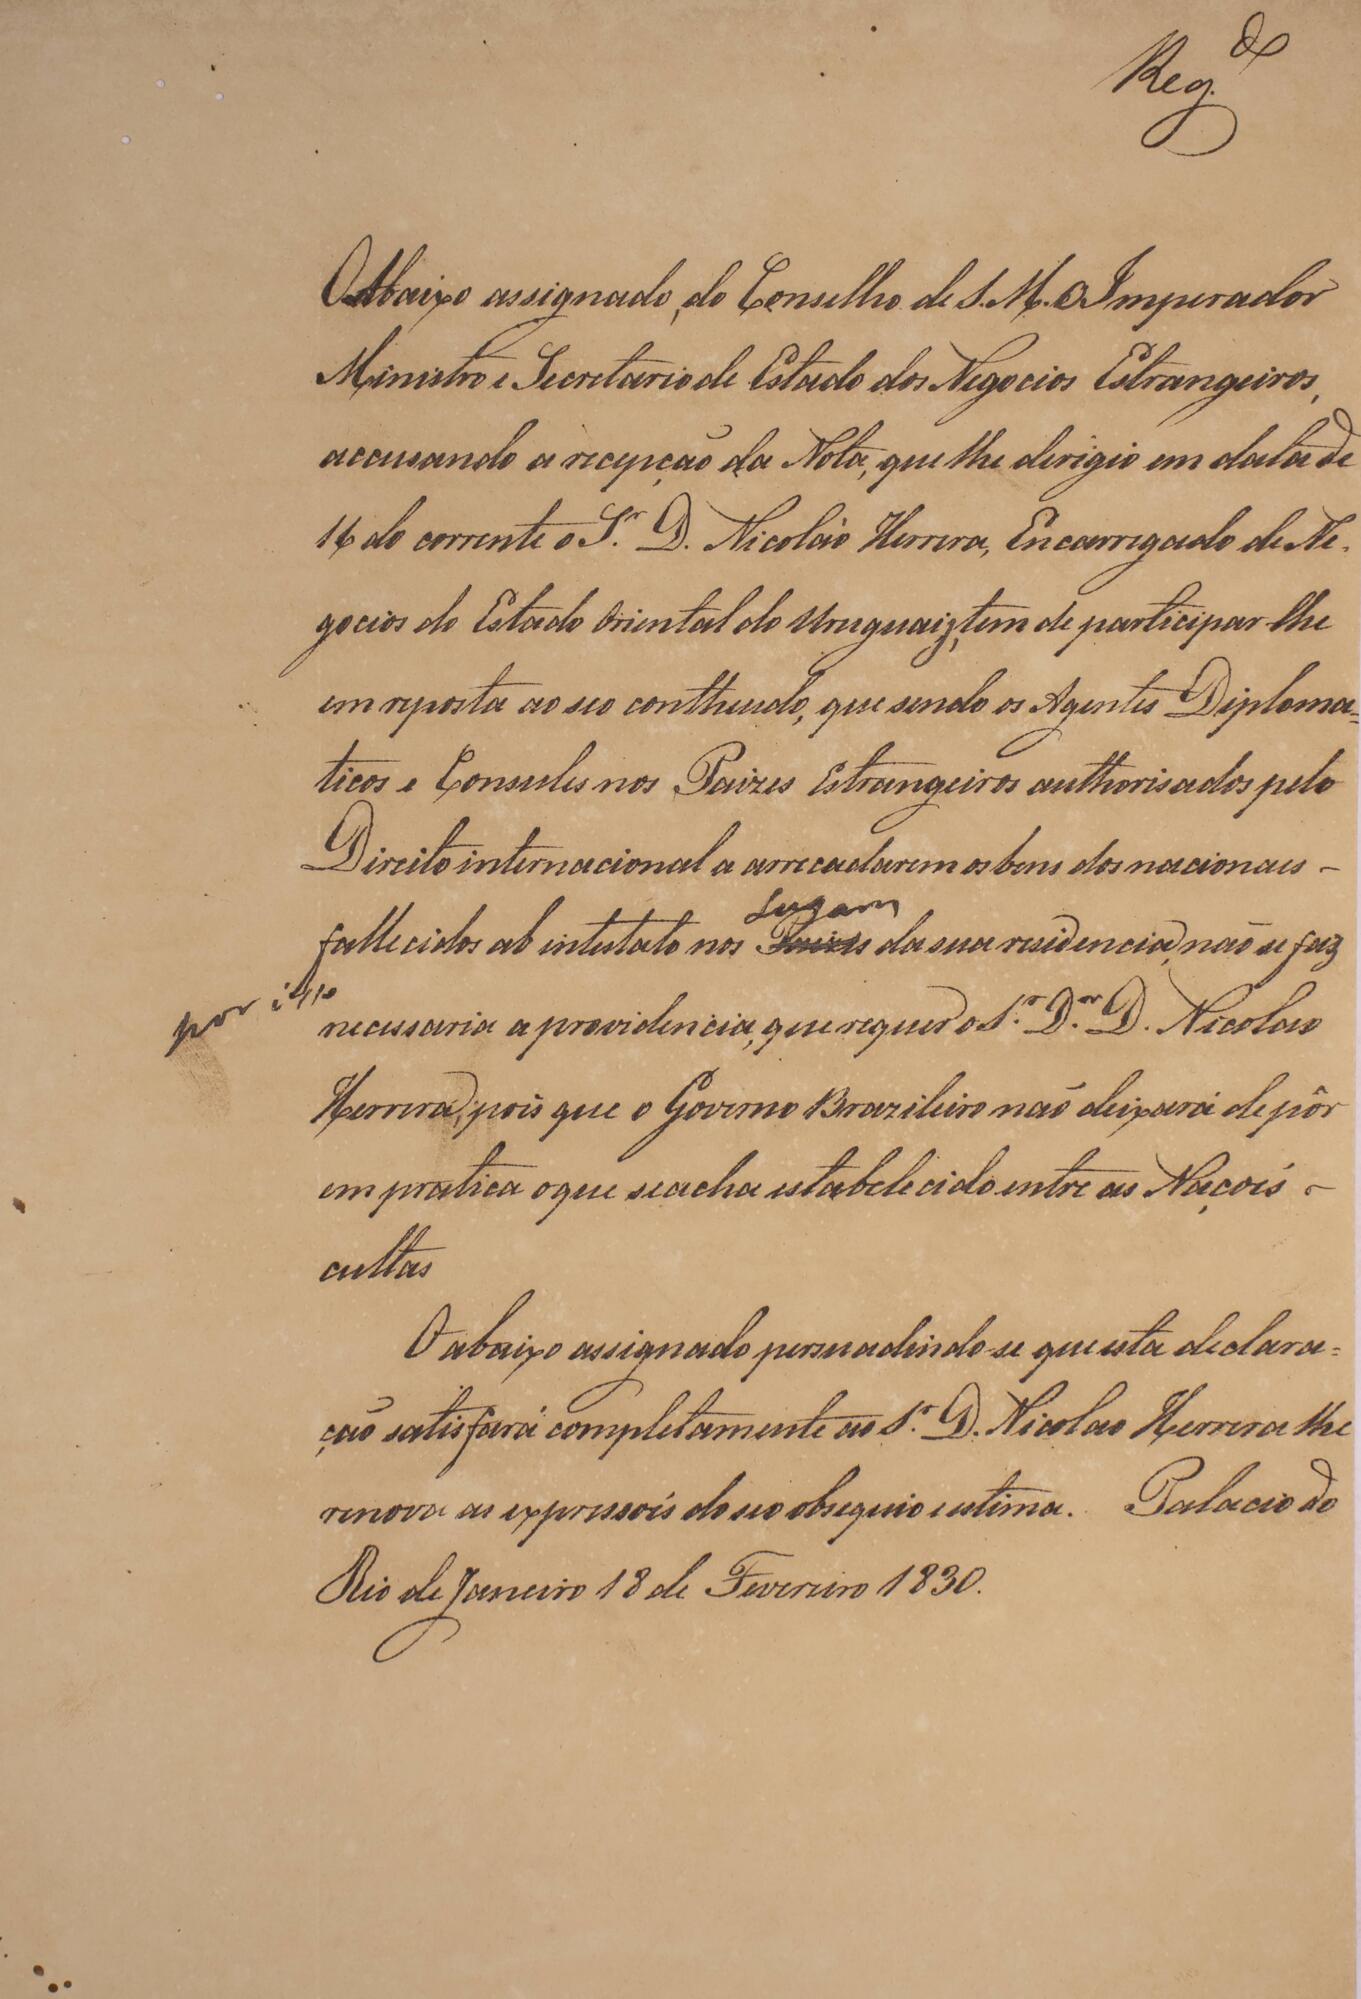 Reg.do
O Abaixo assignado, do Conselho de S. M. O Imperador
Ministro e Secretario de Estado dos Negocios Estrangeiros,
accusando a recepção da Nota, que lhe dirigio em data de
16 do corrente o Sr. D. Nicoláo Herrera, Encarregado de Ne-
gocios do Estado Oriental do Uruguaiz, tem de participar-lhe
em reposta ao seo contheudo, que sendo os Agentes Diploma=
ticos e Consules nos Paizes Estrangeiros authorisados pelo
Direito internacional a arrecadarem os bens dos nacionaes -
Lugares
fallecidos ab intestato nos Paizes da sua residencia, não se faz
por isso
necessaria a providencia, que requer o Sr. Dor. D. Nicolao
Herrera, pois que o Governo Brazileiro não deixará de pôr
em pratica o que se acha estabelecido entre as Naçois -
cultas
O abaixo assignado persuadindo-se que esta declara=
ção satisfará completamente ao Sr. D. Nicolao Herrera lhe
renova as expressois do seo obsequio e estima. Palacio do
Rio de Janeiro 18 de Fevereiro 1830.